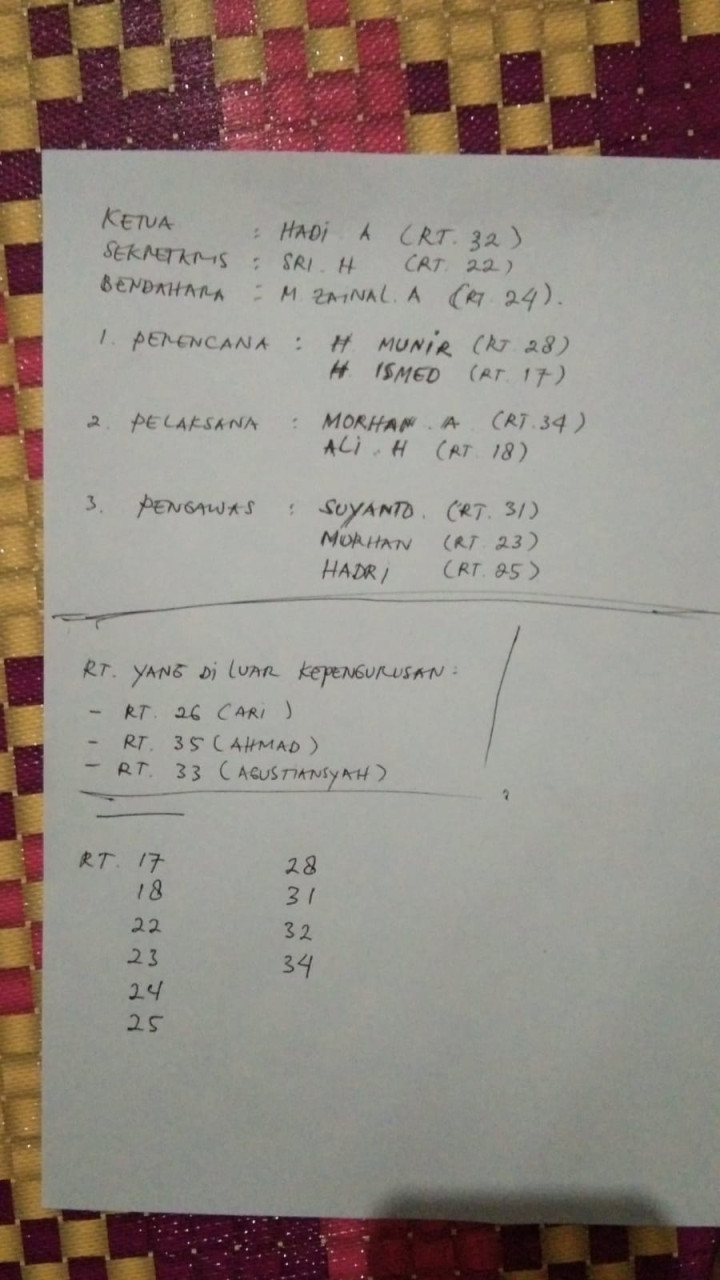 KETUA : HADI A (RT. 32)
SEKRETARIS : SRI. H (RT. 22)
BENDAHARA : M ZAINAL. A (RT 24).
1. PERENCANA : H MUNIR (RT 28)
H ISMED (RT. 17)
2. PELAKSANA : MORHAN . A. (RT. 34)
ALI . H (RT 18)
3. PENGAWAS : SUYANTO. (RT. 31)
MURHAN (RT. 23)
HADRI (RT. 25)
RT. YANG DI LUAR KEPENGURUSAN :
- RT. 26 (ARI)
- RT. 35 (AHMAD)
- RT. 33 (AGUSTIANSYAH)
RT. 17 28
18 31
22 32
23 34
24
25